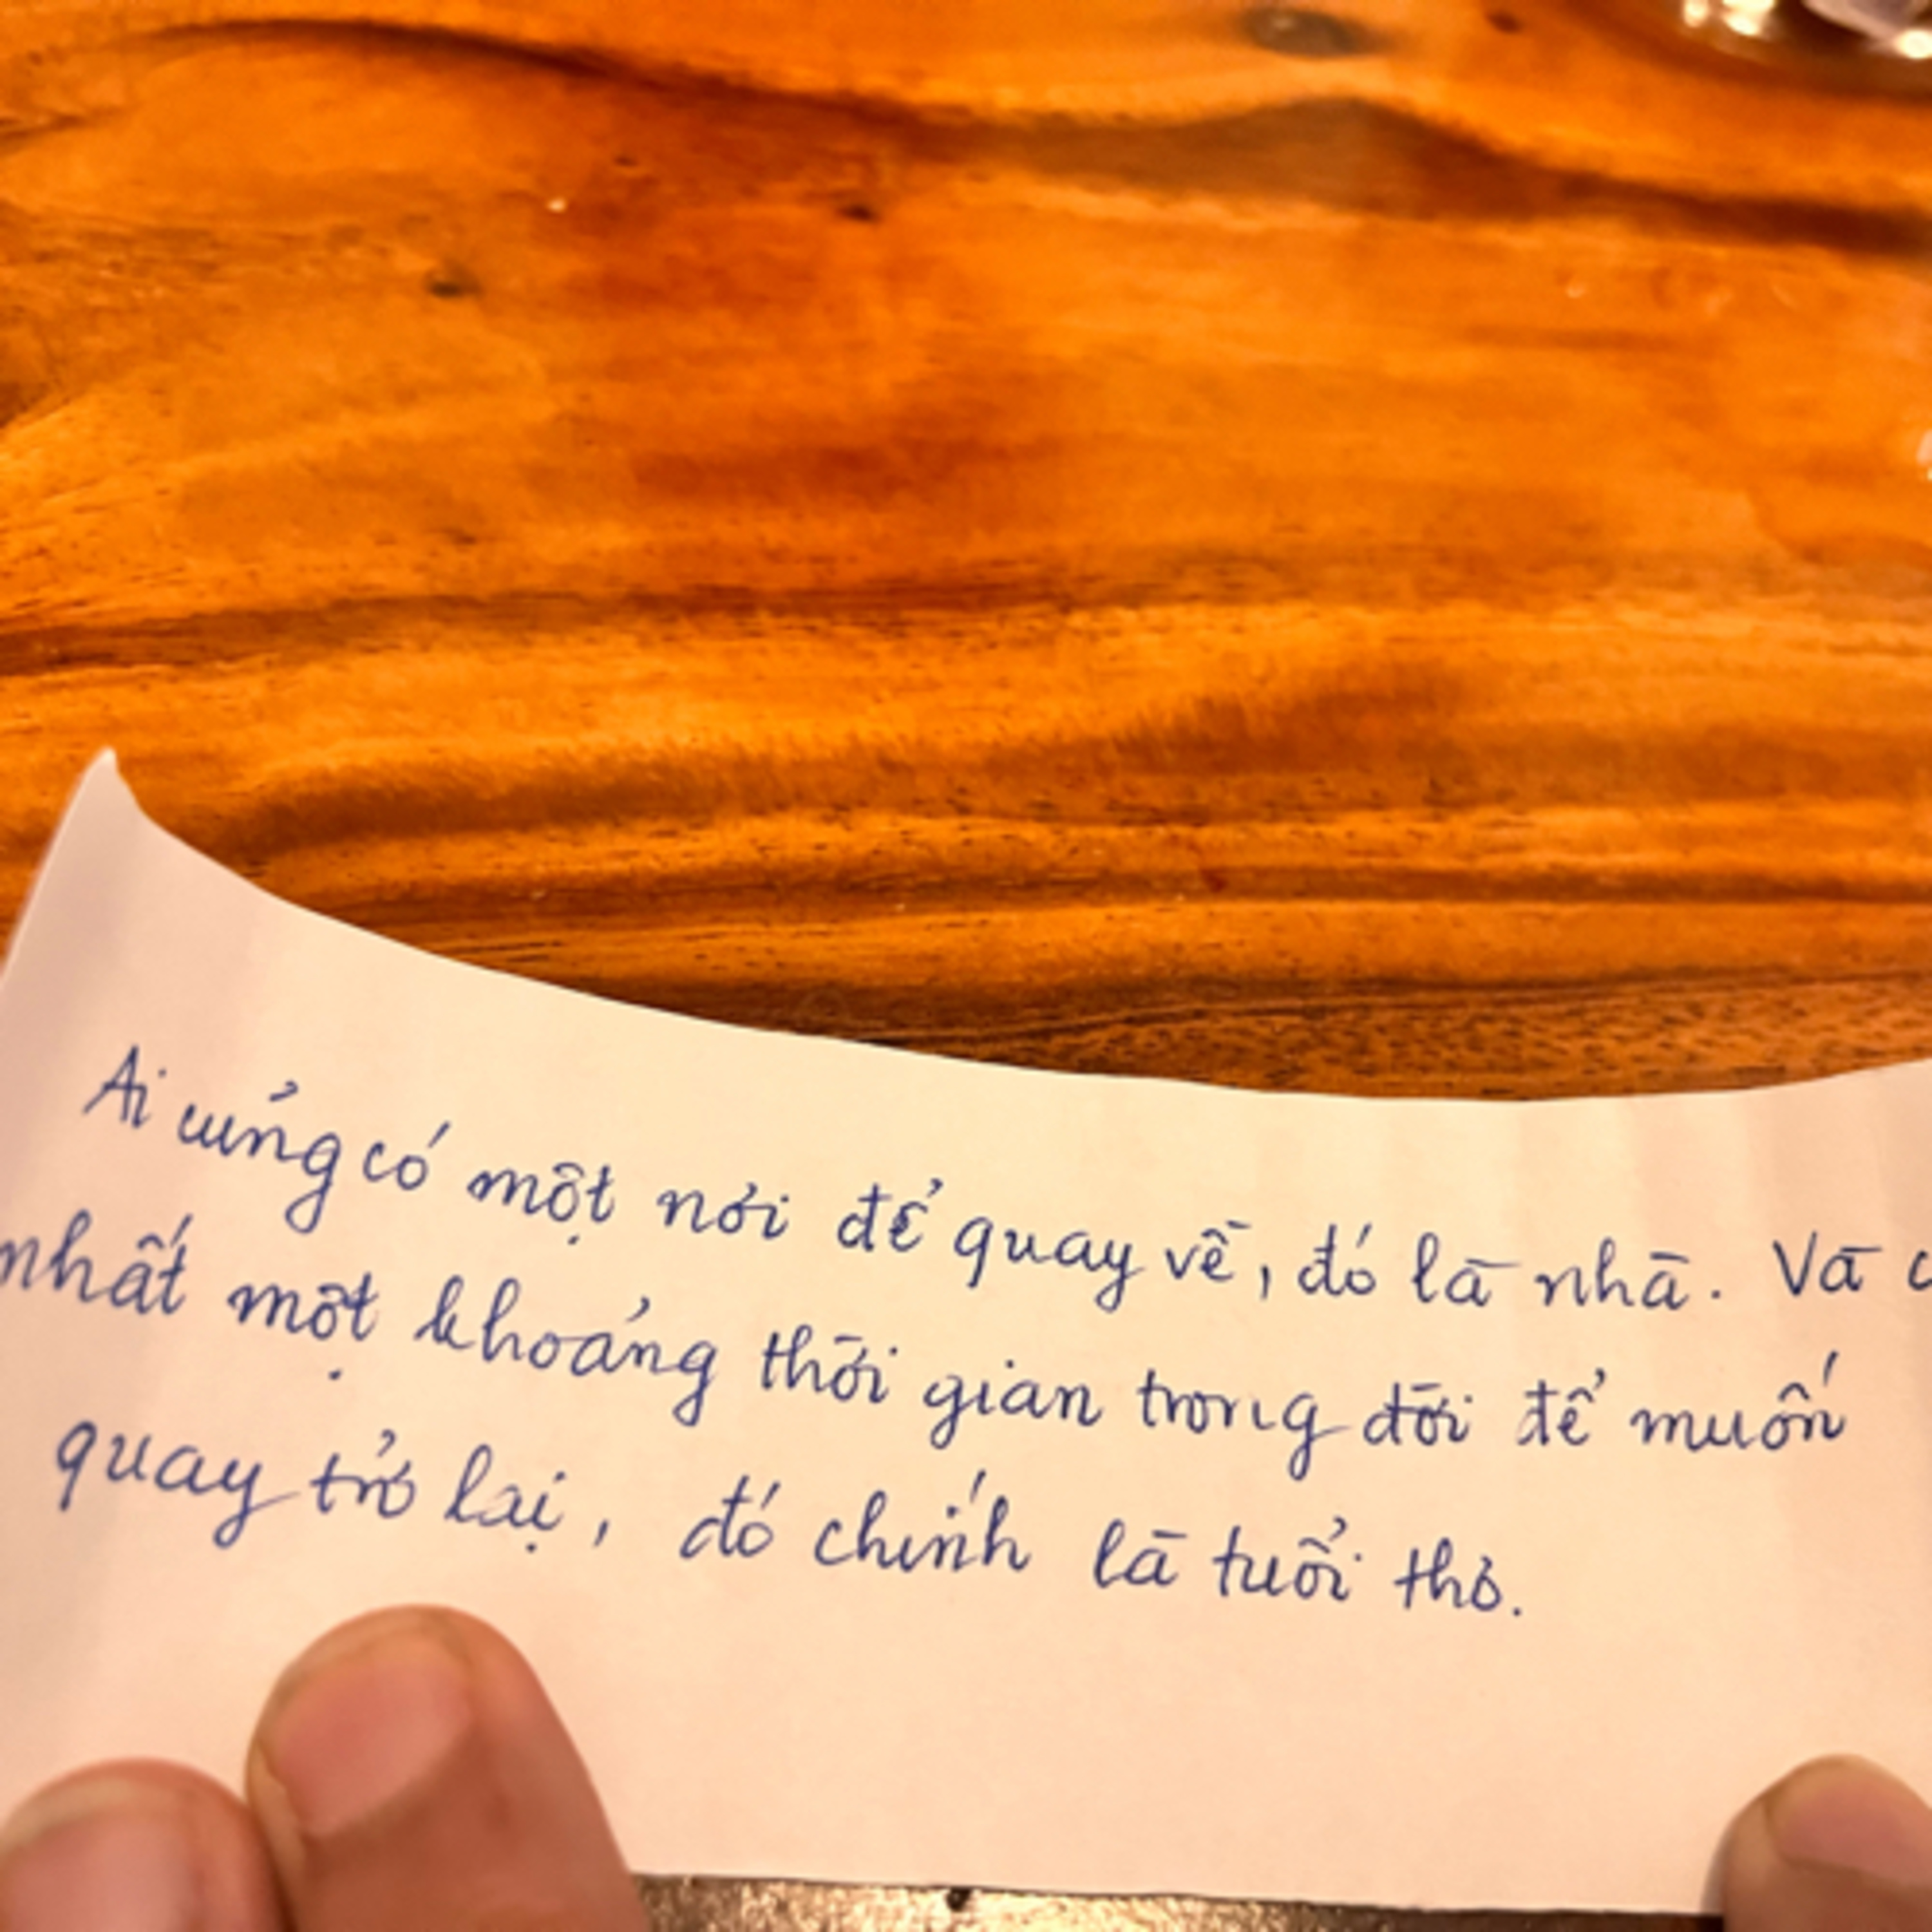 Ai cũng có một nơi để quay về, đó là nhà. Và
nhất một khoảng thời gian trong đời để muốn
quay trở lại, đó chính là tuổi thơ.